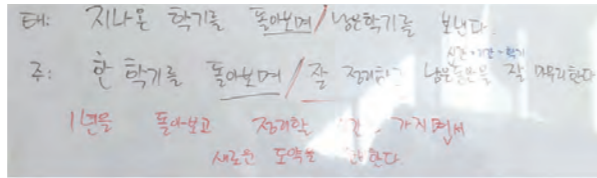 태: 지나온 학기를 돌아보며/남은학기를 보낸다.
시간·기간·학기
주: 한 학기를 돌아보며/잘 정리하고 남은 잘 마무리한다
1년을 돌아보고 정리할 가지면서
새로운 도약을 한다.